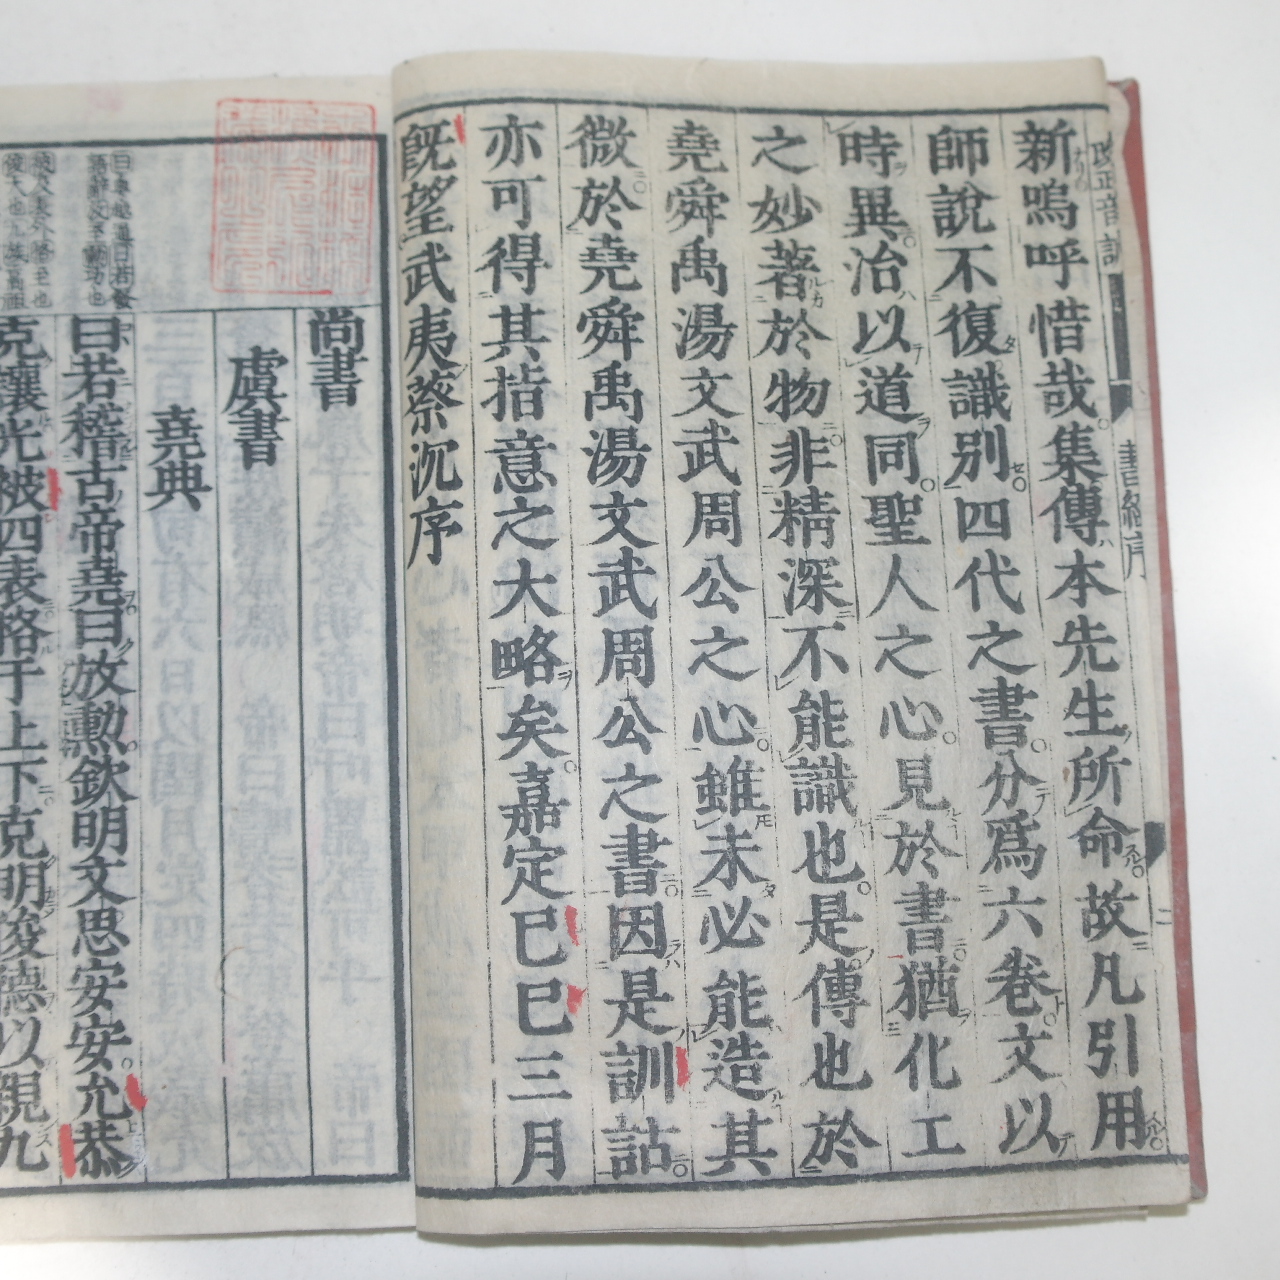 新嗚呼惜哉集傳本先生所命故凡引用
師說不復識別四代之書分爲六卷文以
時異治以道同聖人之心見於書猶化工
之妙著於物非精深不能識也是傳也於
堯舜禹湯文武周公之心雖未必能造其
微於堯舜禹湯文武周公之書因是訓詁
亦可得其指意之大略矣嘉定己巳三月
旣望武夷蔡沉序
尚書
虞書
堯典
曰若稽古帝堯曰放勳欽明文思安安允恭
克讓光被四表格于上下克明俊德以親九